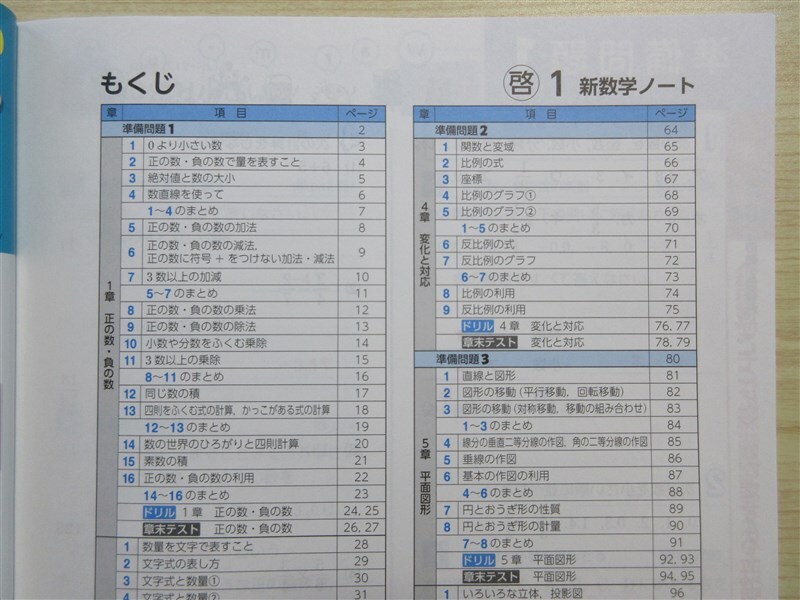 もくじ
啓 1 新数学ノート
章 項目 ページ
準備問題1 2
1章 正の数・負の数
1 0より小さい数 3
2 正の数・負の数で量を表すこと 4
3 絶対値と数の大小 5
4 数直線を使って 6
1~4のまとめ 7
5 正の数・負の数の加法 8
6 正の数・負の数の減法,
正の数に符号+をつけない加法・減法 9
7 3数以上の加減 10
5~7のまとめ 11
8 正の数・負の数の乗法 12
9 正の数・負の数の除法 13
10 小数や分数をふくむ乗除 14
11 3数以上の乗除 15
8~11のまとめ 16
12 同じ数の積 17
13 四則をふくむ式の計算, かっこがある式の計算 18
12~13のまとめ 19
14 数の世界のひろがりと四則計算 20
15 素数の積 21
16 正の数・負の数の利用 22
14~16のまとめ 23
ドリル 1章 正の数・負の数 24, 25
章末テスト 正の数・負の数 26, 27
1 数量を文字で表すこと 28
2 文字式の表し方 29
3 文字式と数量① 30
4 文字式と数量② 31
章 項目 ページ
準備問題2 64
4章 変化と対応
1 関数と変域 65
2 比例の式 66
3 座標 67
4 比例のグラフ① 68
5 比例のグラフ② 69
1~5のまとめ 70
6 反比例の式 71
7 反比例のグラフ 72
6~7のまとめ 73
8 比例の利用 74
9 反比例の利用 75
ドリル 4章 変化と対応 76, 77
章末テスト 変化と対応 78, 79
準備問題3 80
5章 平面図形
1 直線と図形 81
2 図形の移動(平行移動, 回転移動) 82
3 図形の移動(対称移動, 移動の組み合わせ) 83
1~3のまとめ 84
4 線分の垂直二等分線の作図, 角の二等分線の作図 85
5 垂線の作図 86
6 基本の作図の利用 87
4~6のまとめ 88
7 円とおうぎ形の性質 89
8 円とおうぎ形の計量 90
7~8のまとめ 91
ドリル 5章 平面図形 92, 93
章末テスト 平面図形 94, 95
1 いろいろな立体, 投影図 96